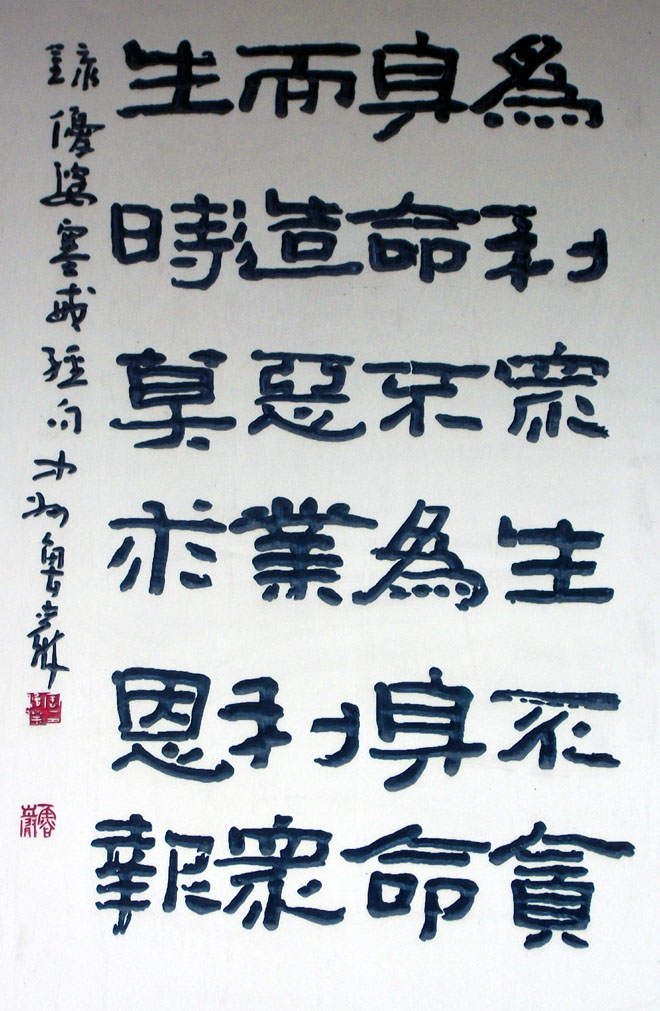 為利眾生不貪
身命不為身命
而造惡業利眾
生時莫求恩報
錄優婆塞戒經句